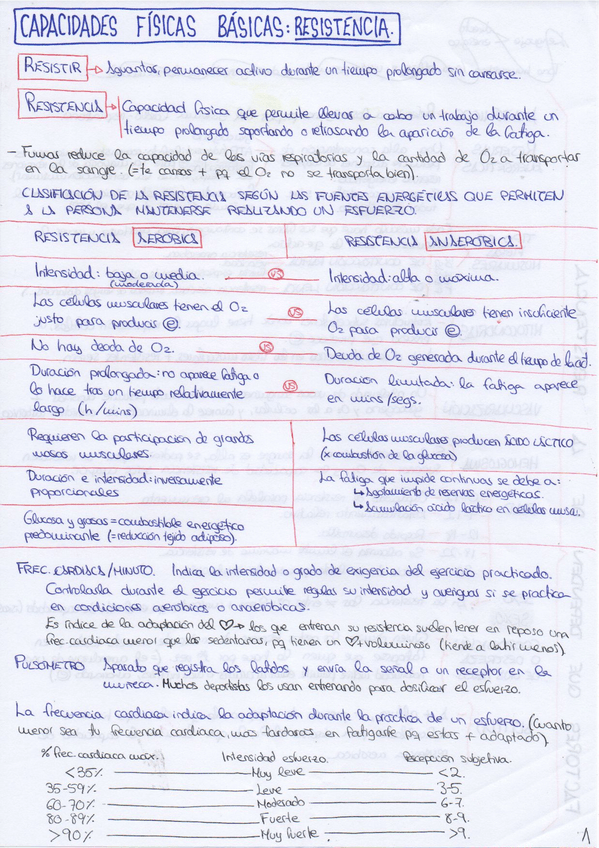 CAPACIDADES FÍSICAS BÁSICAS: RESISTENCIA.
RESISTIR → Aguantar, permanecer activo durante un tiempo prolongado sin cansarse.
RESISTENCIA → Capacidad física que permite llevar a cabo un trabajo durante un
tiempo prolongado soportando o retrasando la aparición de la fatiga.
- Fumar reduce la capacidad de las vías respiratorias y la cantidad de O2 a transportar
en la sangre (= te cansas + pq el O2 no se transporta bien).
CLASIFICACIÓN DE LA RESISTENCIA SEGÚN LAS FUENTES ENERGÉTICAS QUE PERMITEN
A LA PERSONA MANTENERSE REALIZANDO UN ESFUERZO.
RESISTENCIA AERÓBICA
RESISTENCIA ANAERÓBICA.
Intensidad: baja o media.
(moderada)
VS
Intensidad: alta o máxima.
Las células musculares tienen el O2
justo para producir ⓔ.
VS
Las células musculares tienen insuficiente
O2 para producir ⓔ.
No hay deuda de O2.
VS
Deuda de O2 generada durante el tiempo de la act.
Duración prolongada: no aparece fatiga o
lo hace tras un tiempo relativamente
largo (h/mins)
VS
Duración limitada: la fatiga aparece
en mins/segs.
Requieren la participación de grandes
masas musculares.
Las células musculares producen ÁCIDO LÁCTICO
(x combustión de la glucosa)
Duración e intensidad: inversamente
proporcionales
La fatiga que impide continuar se debe a:
↳ Agotamiento de reservas energéticas.
↳ Acumulación ácido láctico en células musc.
Glucosa y grasas = combustible energético
predominante (= reducción tejido adiposo).
FREC. CARDIACA/MINUTO. Indica la intensidad o grado de exigencia del ejercicio practicado.
Controlarla durante el ejercicio permite regular su intensidad y averiguar si se practica
en condiciones aeróbicas o anaeróbicas.
Es índice de la adaptación del ♡ → los que entrenan su resistencia suelen tener en reposo una
frec. cardiaca menor que los sedentarios, pq tienen un ♡ + voluminoso (tiende a latir menos)
PULSÓMETRO Aparato que registra los latidos y envía la señal a un receptor en la
muñeca. Muchos deportistas los usan entrenando para dosificar el esfuerzo.
La frecuencia cardiaca indica la adaptación durante la práctica de un esfuerzo. (Cuanto
menor sea tu frecuencia cardiaca, mas tardaras en fatigarte pq estas + adaptado)
% frec. cardiaca max. Intensidad esfuerzo. Percepción subjetiva.
<35% Muy leve <2.
35-59% Leve 3-5.
60-70% Moderado 6-7.
80-89% Fuerte 8-9.
>90% Muy fuerte >9.
1